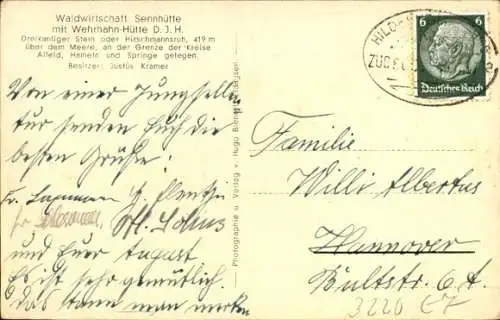 Waldwirtschaft Sennhütte
mit Wehrhahn-Hütte D. J. H.
Dreikantiger Stein oder Hirschmannsruh, 419 m
über dem Meere, an der Grenze der Kreise
Alfeld, Hameln und Springe gelegen.
Besitzer: Justus Kramer
Von einer Junggesellen
tur senden Euch die
besten Grüße:
und Euer August
Es ist sehr gemütlich.
das kann man merken
Photographie u. Verlag v. Hugo
HILD
ZUG
6 6
Deutsches Reich
Familie
Willi Albertus
Hannover
Bultstr. 6 A.
3220 E7